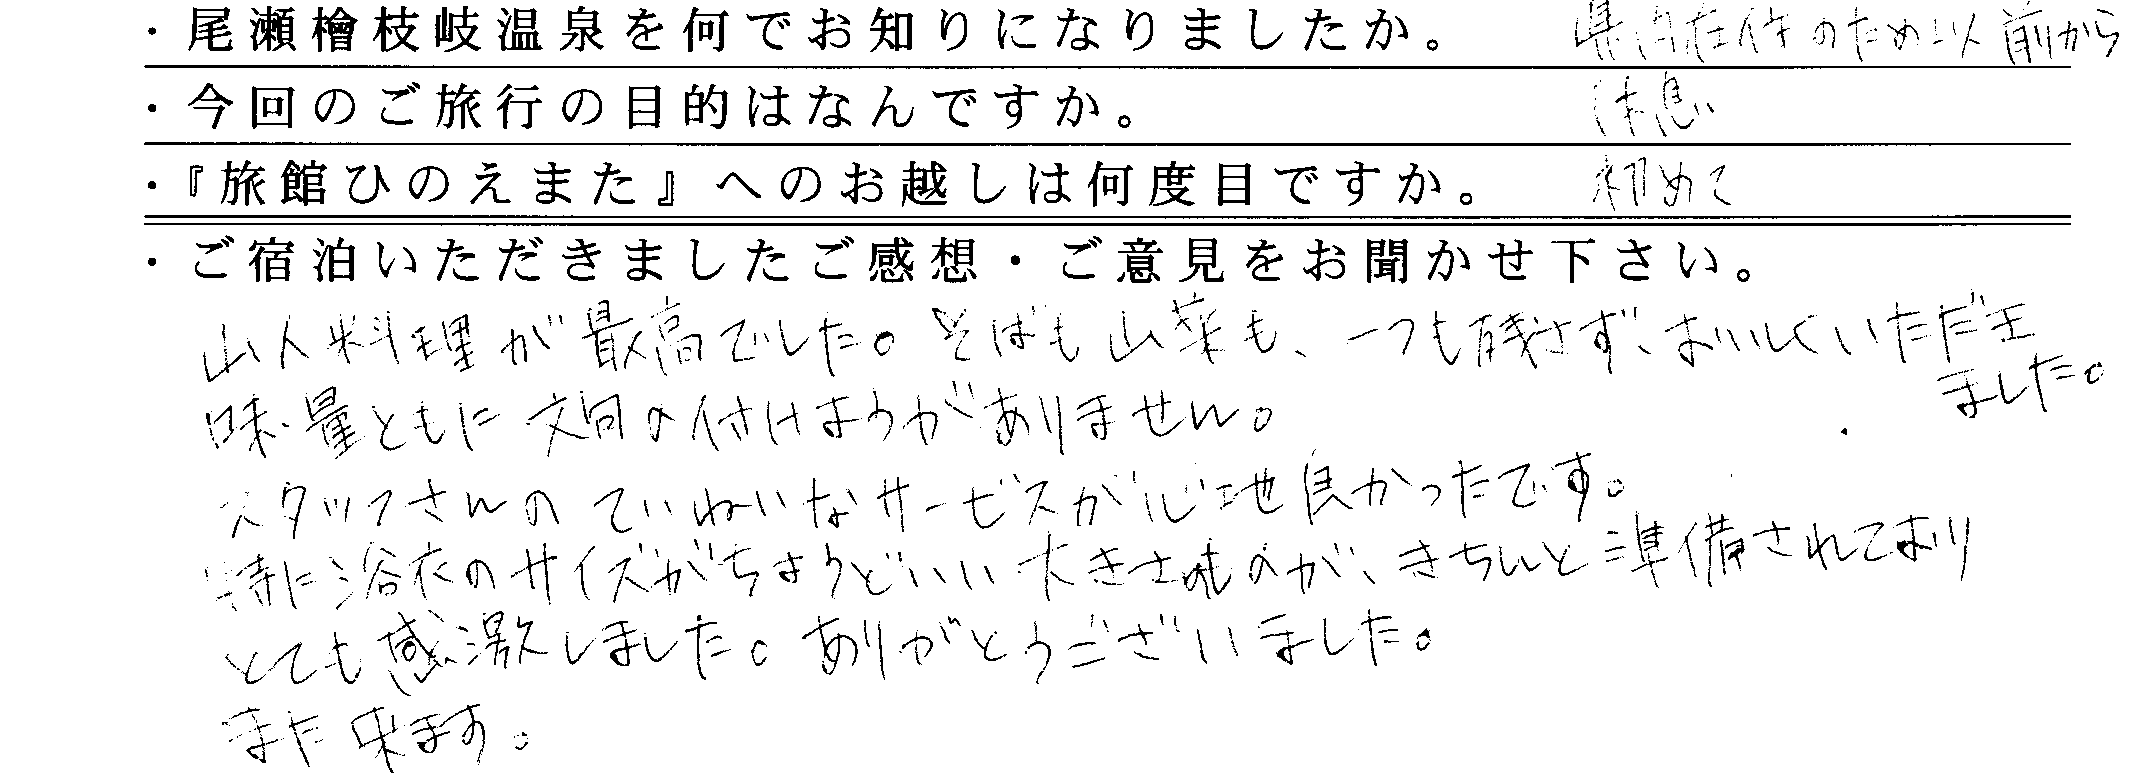 ・尾瀬檜枝岐温泉を何でお知りになりましたか。 県内在住のため以前から
・今回のご旅行の目的はなんですか。 休息
・『旅館ひのえまた』へのお越しは何度目ですか。 初めて
・ご宿泊いただきましたご感想・ご意見をお聞かせ下さい。
山人料理が最高でした。そばも山菜も、一つも残さず、おいしくいただき
ました。
味・量ともに文句の付けようがありません。
スタッフさんのていねいなサービスが心地良かったです。
特に浴衣のサイズがちょうどいい大きさのものが、きちんと準備されており
とても感激しました。ありがとうございました。
また来ます。